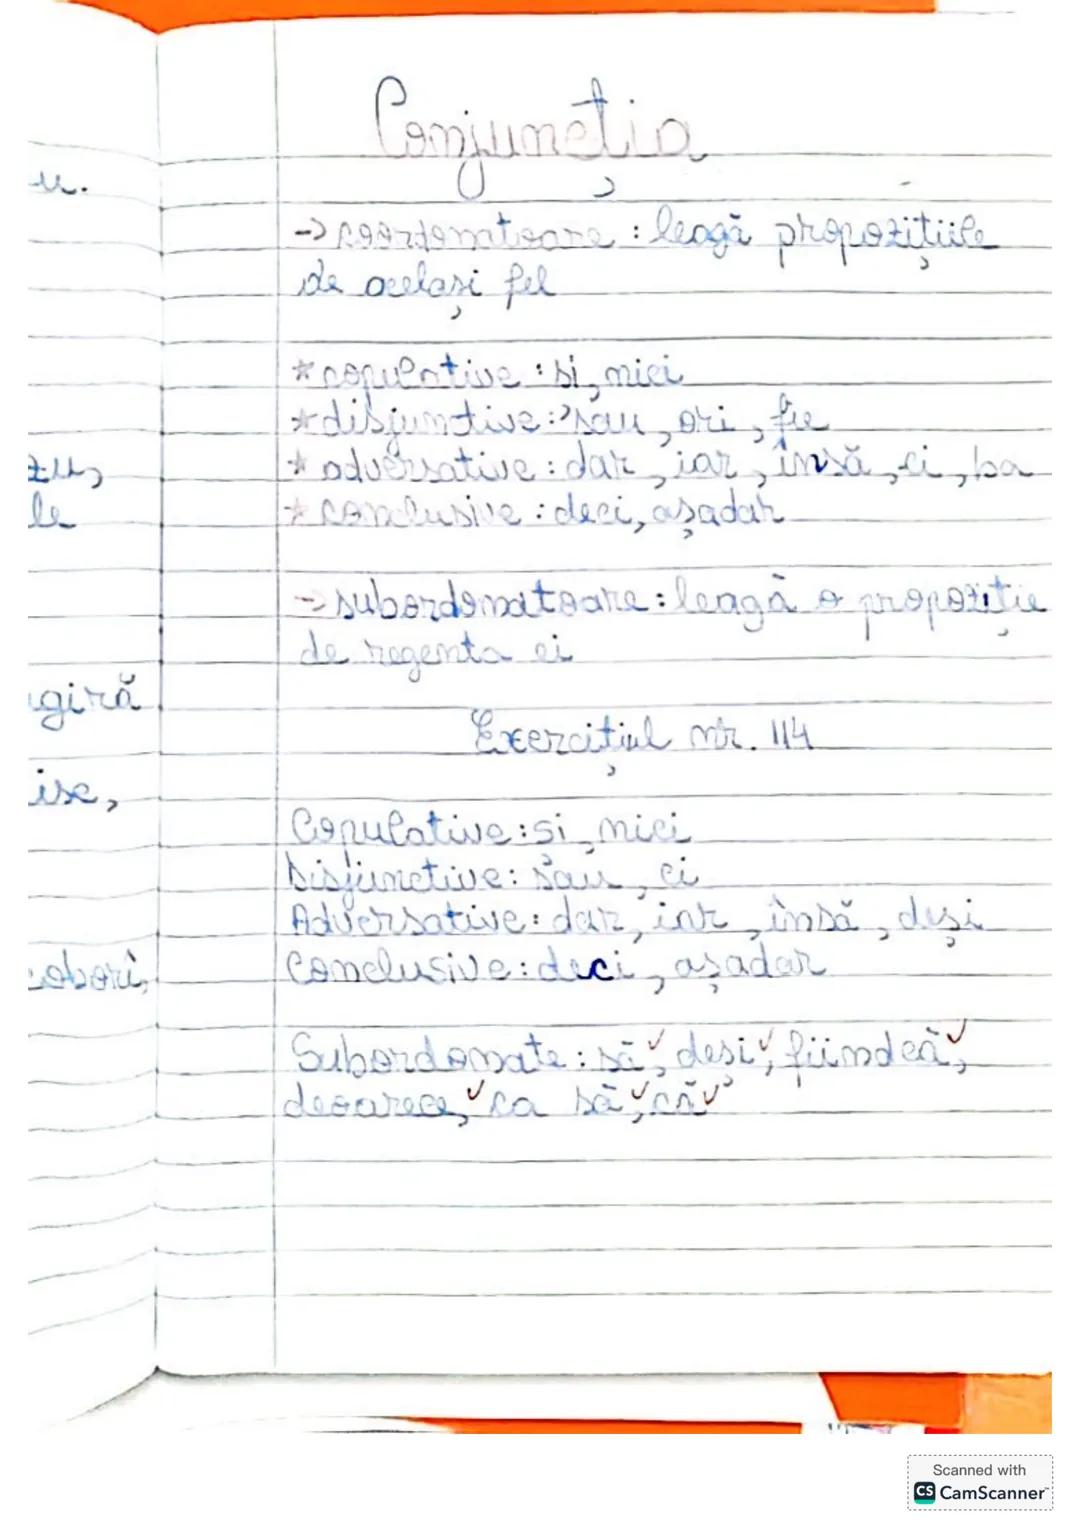 Conjuncția
-> coordonatoare : leagă propozițiile
de același fel
* copulative : și, nici
* disjunctive : sau, ori, fie
* adversative : dar, iar, însă, ci, ba
* conclusive : deci, așadar
-> subordonatoare : leagă o propoziție
de regenta ei
Exercițiul nr. 114
Copulative : și, nici
Disjunctive : sau, ci
Adversative : dar, iar, însă, deși
Conclusive : deci, așadar
Subordonate : să, deși, fiindcă,
deoarece, ca să, că
u.
zu,
le
giră
ise,
cobori,
Scanned with
CS CamScanner